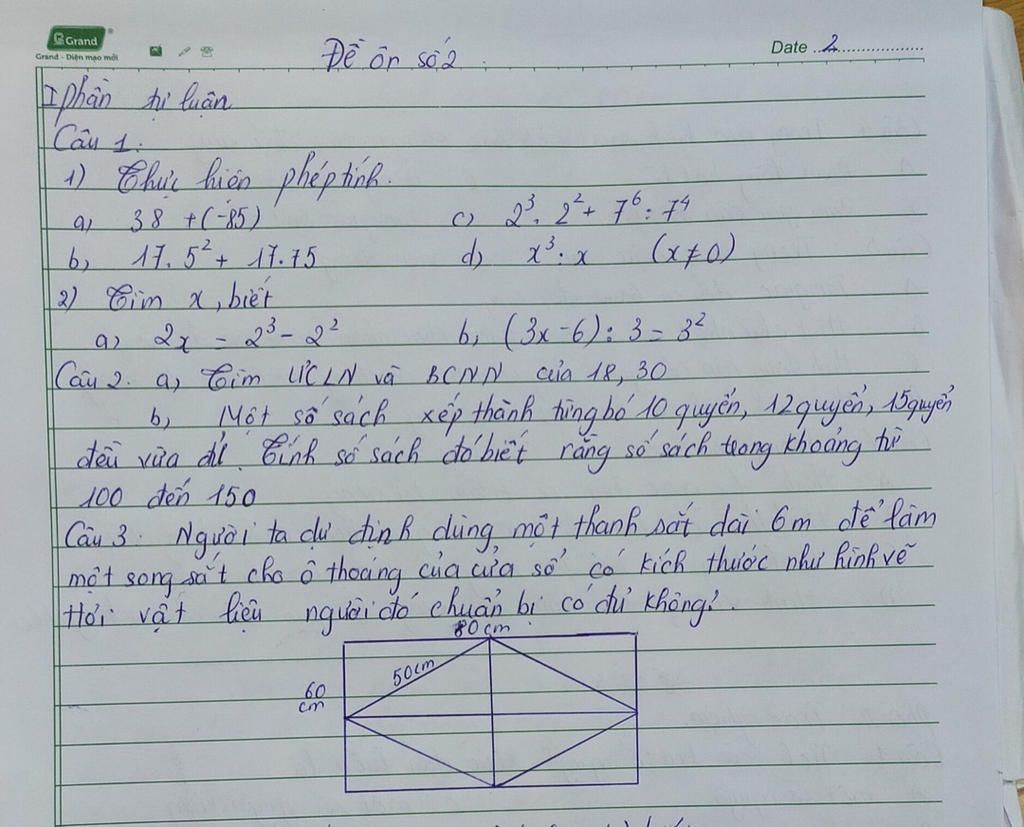 Grand
Grand - Diện mạo mới
Date 2
Đề ôn số 2
I phần tự luận
Câu 1:
1) Thực hiện phép tính.
a, 38 + (-85) c, 2³. 2² + 7⁶ : 7⁴
b, 17. 5² + 17.75 d, x³ : x (x ≠ 0)
2) Tìm x, biết
a, 2x = 2³ - 2² b, (3x - 6) : 3 = 3²
Câu 2. a, Tìm ƯCLN và BCNN của 18, 30
b, Một số sách xếp thành từng bó 10 quyển, 12 quyển, 15 quyển
đều vừa đủ. Tính số sách đó biết rằng số sách trong khoảng từ
100 đến 150
Câu 3. Người ta dự định dùng một thanh sắt dài 6m để làm
một song sắt cho ô thoáng của cửa sổ có kích thước như hình vẽ
Hỏi vật liệu người đó chuẩn bị có đủ không?.
80 cm
50cm
60
cm